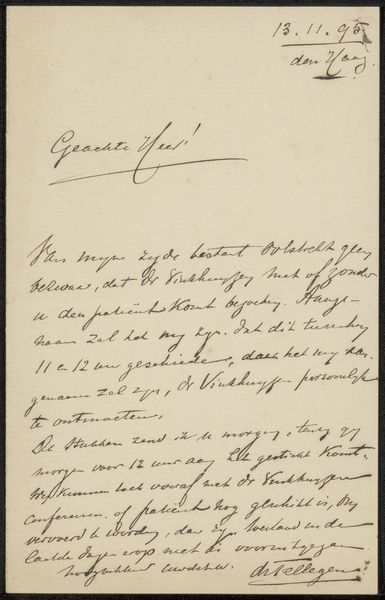 13.11.95
den Haag
Geachte Heer!
Van mijne zijde bestaat volstrekt geen
bezwaar, dat Dr Vinkhuyzen met of zonder
u den patiënt komt bezoeken. Aange-
naam zal het mij zijn, dat dit tusschen
11 en 12 uur geschiede, daar het mij aan-
genaam zal zijn, Dr Vinkhuyzen persoonlijk
te ontmoeten.
De stukken zend ik u morgen, tenzij gij
morgen voor 12 uur aan het gesticht komt.
Wij kunnen toch vooraf met Dr Vinkhuyzen
confereeren, of patient nog geschikt is, om
vervoerd te worden, daar zijn toestand in de
laatste dagen er op niet is vooruitgegaan.
Hoogachtend
drTellegen